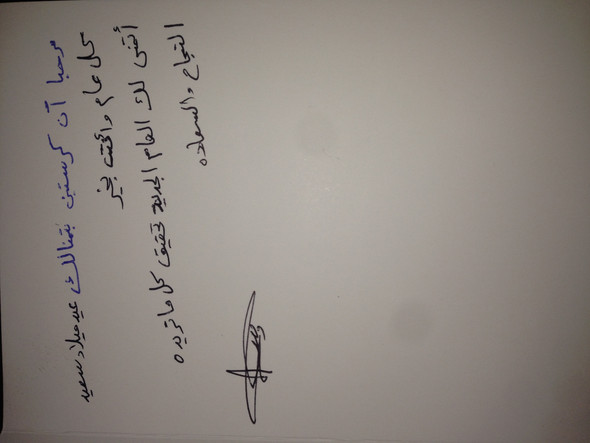 مرحبا آن كرستين نتمنالك عيد ميلاد سعيد
كل عام وانتي بخير
أتمنى لك العام الجديد تحقيق كل ما تريده
النجاح والسعاده